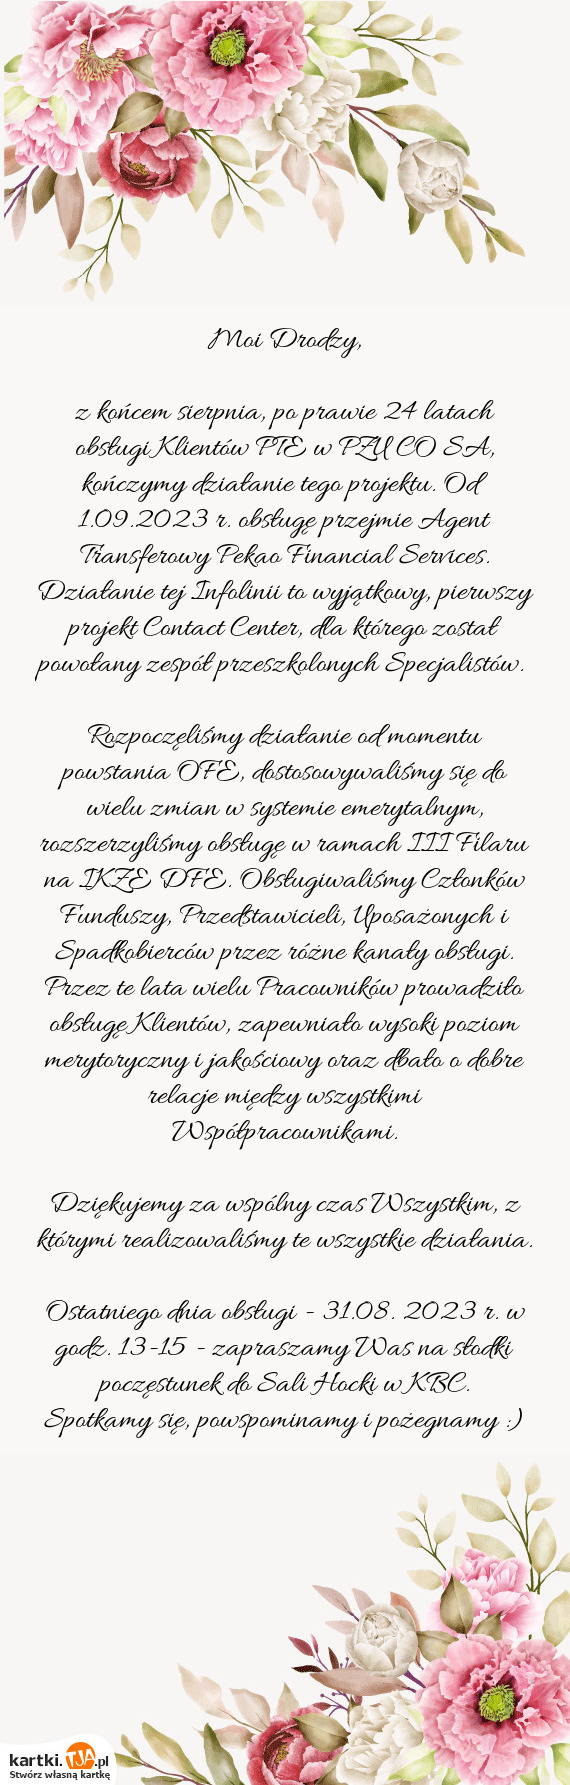 Moi Drodzy,
z końcem sierpnia, po prawie 24 latach
obsługi Klientów PTE w PZU CO SA,
kończymy działanie tego projektu. Od
1.09.2023 r. obsługę przejmie Agent
Transferowy Pekao Financial Services.
Działanie tej Infolinii to wyjątkowy, pierwszy
projekt Contact Center, dla którego został
powołany zespół przeszkolonych Specjalistów.
Rozpoczęliśmy działanie od momentu
powstania OFE, dostosowywaliśmy się do
wielu zmian w systemie emerytalnym,
rozszerzyliśmy obsługę w ramach III Filaru
na IKZE DFE. Obsługiwaliśmy Członków
Funduszy, Przedstawicieli, Uposażonych i
Spadkobierców przez różne kanały obsługi.
Przez te lata wielu Pracowników prowadziło
obsługę Klientów, zapewniało wysoki poziom
merytoryczny i jakościowy oraz dbało o dobre
relacje między wszystkimi
Współpracownikami.
Dziękujemy za wspólny czas Wszystkim, z
którymi realizowaliśmy te wszystkie działania.
Ostatniego dnia obsługi - 31.08. 2023 r. w
godz. 13-15 - zapraszamy Was na słodki
poczęstunek do Sali Hocki w KBC.
Spotkamy się, powspominamy i pożegnamy :)
kartki.TJA.pl
Stwórz własną kartkę